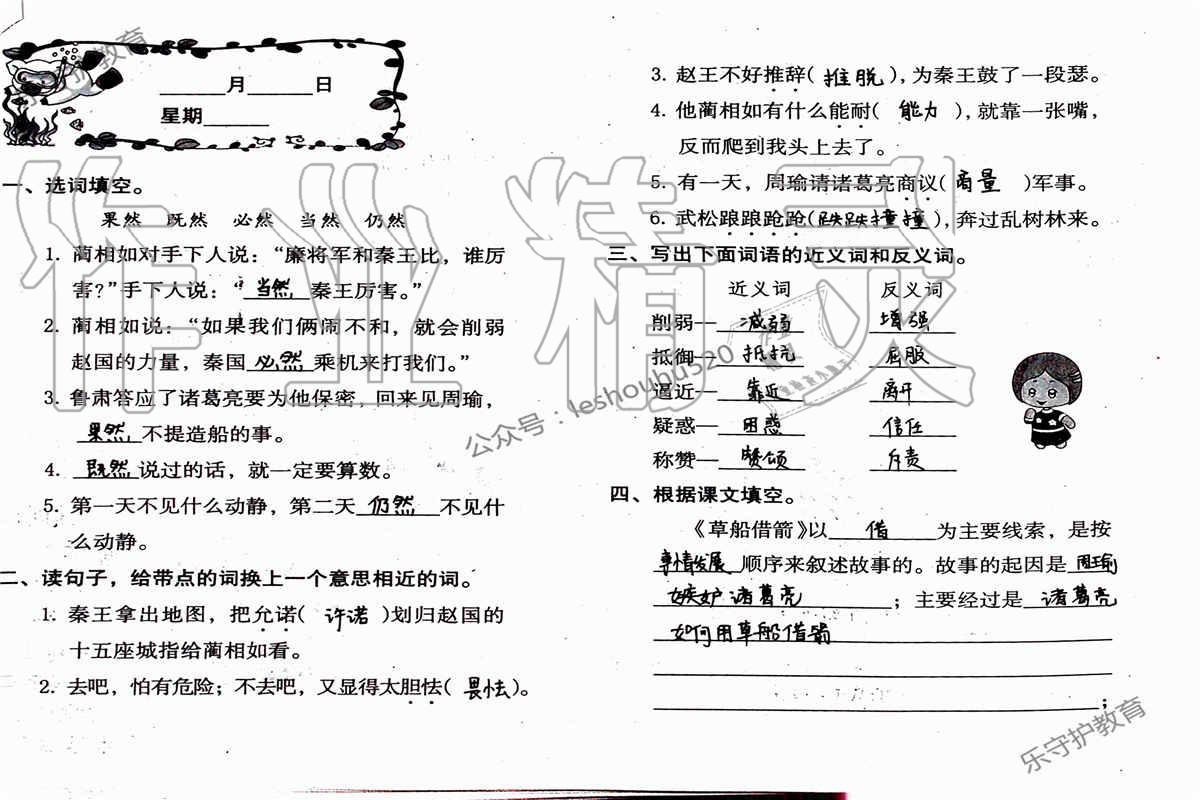 ______月______日
星期______
一、选词填空。
果然 既然 必然 当然 仍然
1. 蔺相如对手下人说：“廉将军和秦王比，谁厉
害?”手下人说：“当然秦王厉害。”
2. 蔺相如说：“如果我们俩闹不和，就会削弱
赵国的力量，秦国必然乘机来打我们。”
3. 鲁肃答应了诸葛亮要为他保密，回来见周瑜，
果然不提造船的事。
4. 既然说过的话，就一定要算数。
5. 第一天不见什么动静，第二天仍然不见什
么动静。
二、读句子，给带点的词换上一个意思相近的词。
1. 秦王拿出地图，把允诺( 许诺 )划归赵国的
十五座城指给蔺相如看。
2. 去吧，怕有危险；不去吧，又显得太胆怯( 畏怯 )。
3. 赵王不好推辞( 推脱 )，为秦王鼓了一段瑟。
4. 他蔺相如有什么能耐( 能力 )，就靠一张嘴，
反而爬到我头上去了。
5. 有一天，周瑜请诸葛亮商议( 商量 )军事。
6. 武松踉踉跄跄(跌跌撞撞)，奔过乱树林来。
三、写出下面词语的近义词和反义词。
近义词 反义词
削弱—减弱 增强
抵御—抵抗 屈服
逼近—靠近 离开
疑惑—困惑 信任
称赞—赞颂 斥责
四、根据课文填空。
《草船借箭》以 借 为主要线索，是按
事情发展 顺序来叙述故事的。故事的起因是 周瑜
嫉妒诸葛亮 ；主要经过是 诸葛亮
如何用草船借箭
；
作业精灵
公众号：leshouhu520
乐守护教育